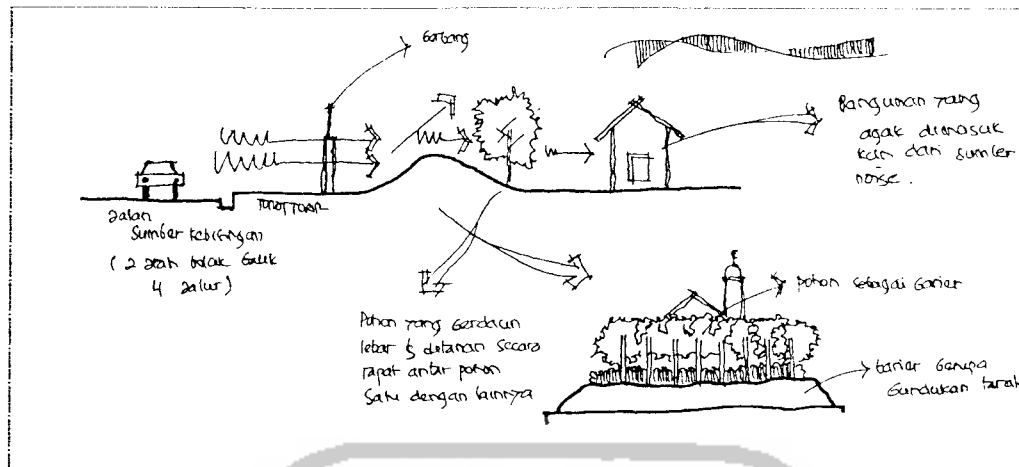 Gerbang
Bangunan yang
agak dimasuk
kan dari sumber
noise.
TROTTOAR
Jalan
Sumber kebisingan
( 2 arah bolak balik
4 jalur)
Pohon yang berdaun
lebar & ditanam secara
rapat antar pohon
Satu dengan lainnya
pohon sebagai barier
barier berupa
Gundukan tanah